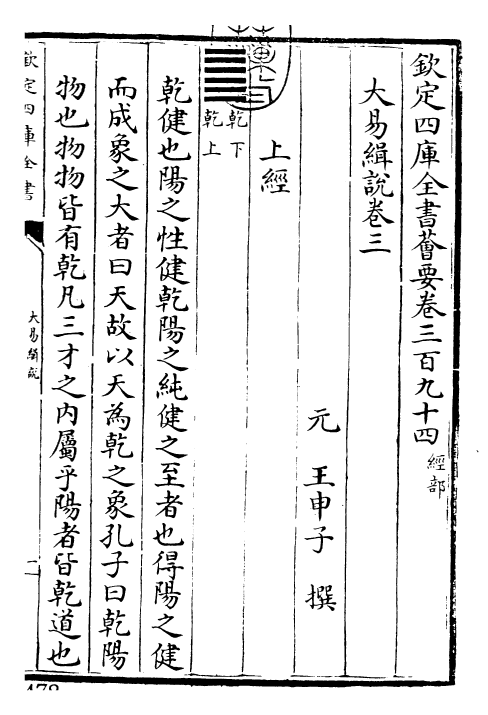 欽定四庫全書薈要卷三百九十四 經部
大易緝說卷三
元 王申子 撰
上經
乾下
乾上
乾健也陽之性健乾陽之純健之至者也得陽之健
而成象之大者曰天故以天為乾之象孔子曰乾陽
物也物物皆有乾凡三才之內屬乎陽者皆乾道也
欽定四庫全書
大易緝說